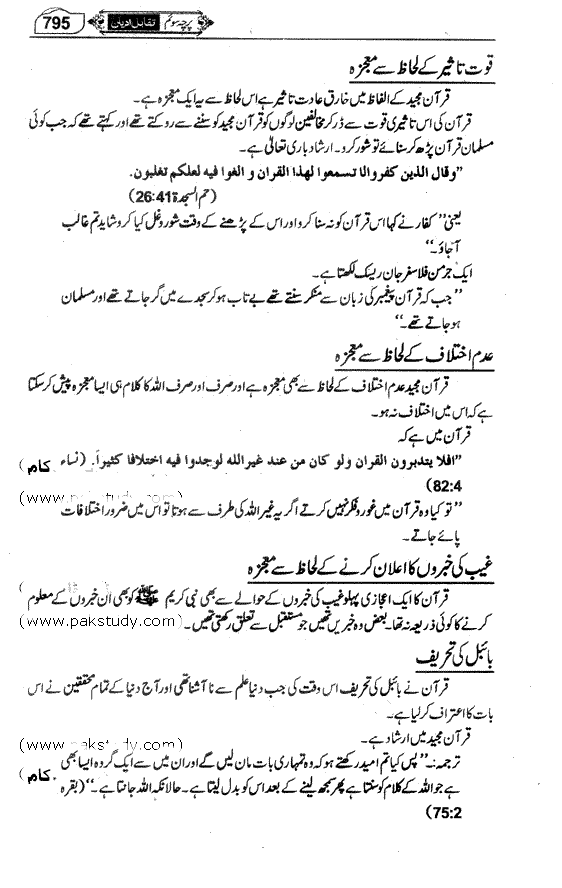 پرچہ سوئم تقابل ادیان 795
قوت تاثیر کے لحاظ سے معجزہ
قرآن مجید کے الفاظ میں خارق عادت تاثیر ہے اس لحاظ سے یہ ایک معجزہ ہے۔
قرآن کی اس تاثیری قوت سے ڈر کر مخالفین لوگوں کو قرآن مجید کو سننے سے روکتے تھے اور کہتے تھے کہ جب کوئی
مسلمان قرآن پڑھ کر سنائے تو شور کرو۔ ارشاد باری تعالیٰ ہے۔
”وقال الذین کفروا لا تسمعوا لھذا القران و الغوا فیہ لعلکم تغلبون.
(حٰم السجدۃ 26:41)
یعنی ”کفار نے کہا اس قرآن کو نہ سنا کرو اور اس کے پڑھنے کے وقت شور و غل کیا کرو شاید تم غالب
آجاؤ۔“
ایک جرمن فلاسفر جان ریسک لکھتا ہے۔
”جب کہ قرآن پیغمبر کی زبان سے منکر سنتے تھے بے تاب ہو کر سجدے میں گر جاتے تھے اور مسلمان
ہو جاتے تھے۔“
عدم اختلاف کے لحاظ سے معجزہ
قرآن مجید عدم اختلاف کے لحاظ سے بھی معجزہ ہے اور صرف اور صرف اللہ کا کلام ہی ایسا معجزہ پیش کر سکتا
ہے کہ اس میں اختلاف نہ ہو۔
قرآن میں ہے کہ
”افلا یتدبرون القران ولو کان من عند غیر اللہ لوجدوا فیہ اختلافا کثیراً. (نساء
کام)
82:4)
(www.pakstudy.com)
”تو کیا وہ قرآن میں غور و فکر نہیں کرتے اگر یہ غیر اللہ کی طرف سے ہوتا تو اس میں ضرور اختلافات
پائے جاتے۔
غیب کی خبروں کا اعلان کرنے کے لحاظ سے معجزہ
قرآن کا ایک اعجازی پہلو غیب کی خبروں کے حوالے سے بھی نبی کریم ﷺ کو بھی ان خبروں کے معلوم
کرنے کا کوئی ذریعہ نہ تھا۔ بعض وہ خبریں تھیں جو مستقبل سے تعلق رکھتی تھیں۔
(www.pakstudy.com)
بائبل کی تحریف
قرآن نے بائبل کی تحریف اس وقت کی جب دنیا علم سے نا آشنا تھی اور آج دنیا کے تمام محققین نے اس
بات کا اعتراف کر لیا ہے۔
قرآن مجید میں ارشاد ہے۔
(www.pakstudy.com)
ترجمہ:۔ ”پس کیا تم امید رکھتے ہو کہ وہ تمہاری بات مان لیں گے اور ان میں سے ایک گروہ ایسا بھی
ہے جو اللہ کے کلام کو سنتا ہے پھر سمجھ لینے کے بعد اس کو بدل لیتا ہے۔ حالانکہ اللہ جانتا ہے۔“ (بقرہ
کام)
75:2)